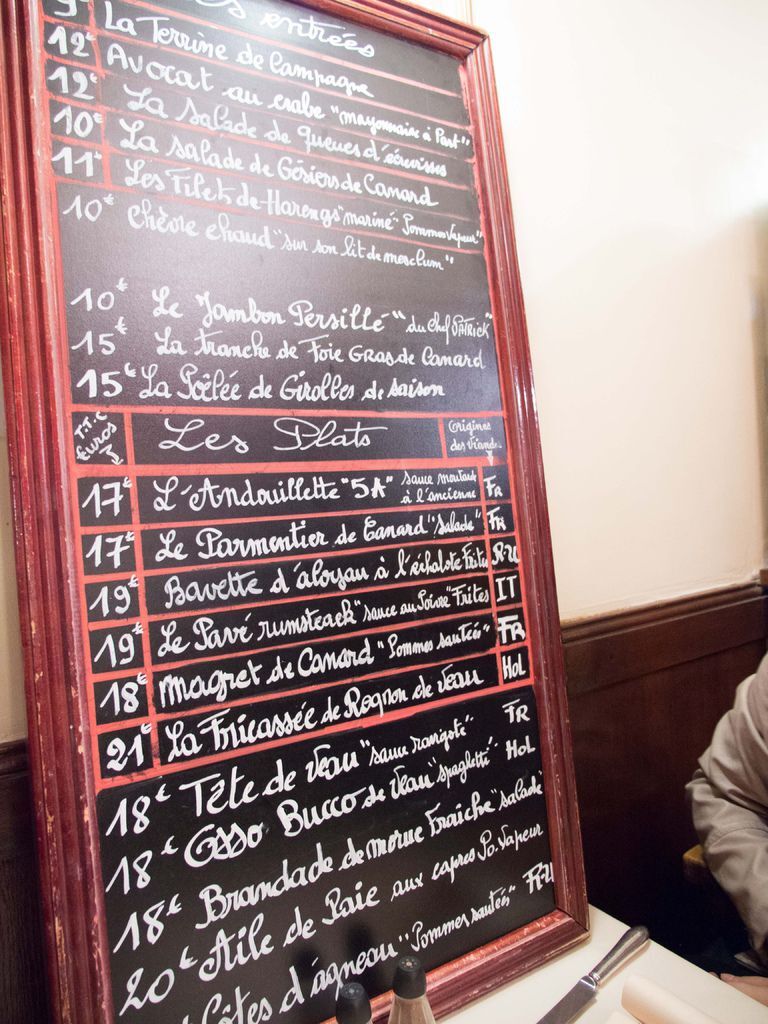 es entrées
9€ La Terrine de Campagne
12€ Avocat au crabe "mayonnaise à Part"
12€ La salade de queues d'écrevisses
10€ La salade de Gésiers de Canard
11€ Les Filets de Harengs "mariné" Pommes Vapeur"
10€ Chèvre chaud "sur son lit de mesclum"
10€ Le Jambon Persillé "du chef PATRICK"
15€ La tranche de Foie Gras de Canard
15€ La Poêlée de Girolles de saison
T.T.C euros Les Plats origines des viandes
17€ L'Andouillette "5A" sauce moutarde à l'ancienne FR
17€ Le Parmentier de Canard "salade" FR
19€ Bavette d'aloyau à l'échalote Frites RU
19€ Le Pavé rumsteack "sauce au Poivre" Frites IT
18€ Magret de Canard "Pommes sautées" FR
21€ La Fricassée de Rognon de veau HoL
18€ Tête de veau "sauce ravigote" FR
18€ Osso Bucco de veau "spaghetti" HoL
18€ Brandade de morue Fraîche "salade"
20€ Aile de Raie aux capres Po. Vapeur
Côtes d'agneau "Pommes sautées" RU